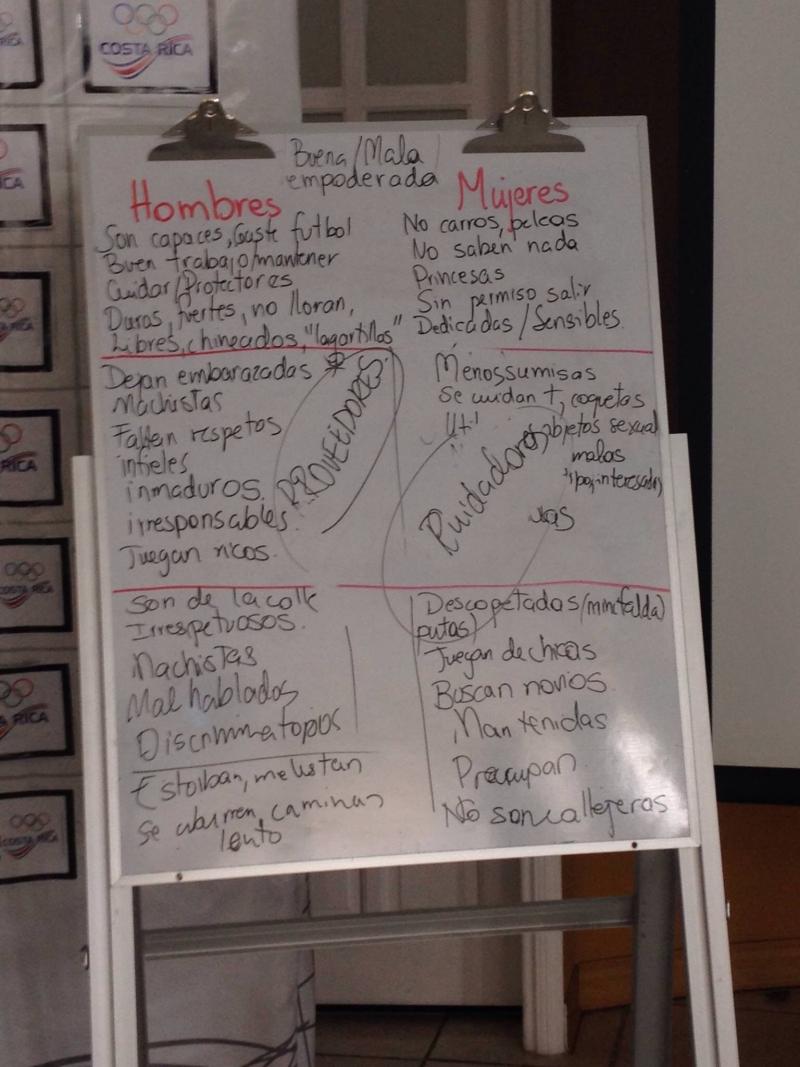 COSTA RICA
Buena/Mala
empoderada
Hombres
Son capaces, Guste futbol
Buen trabajo/mantener
Cuidar/Protectores
Duros, fuertes, no lloran,
Libres, chineados, "lagartillos"
Dejan embarazadas
Machistas
Falten respetos
infieles
inmaduros.
irresponsables
Juegan ricos.
PROVEEDORES
Son de la calle
Irrespetuosos.
Machistas
Mal hablados
Discriminatorios
Estorban, molestan
Se aburren, caminan
lento
Mujeres
No carros, peleas
No saben nada
Princesas
Sin permiso salir
Dedicadas/Sensibles.
Menossumisas
Se cuidan +, coquetas
objetos sexual
malas
Cuidadoras
Descopetadas (minifalda)
putas)
Juegan de chicas
Buscan novios
Mantenidas
Preocupan
No son callejeras
COSTA RICA